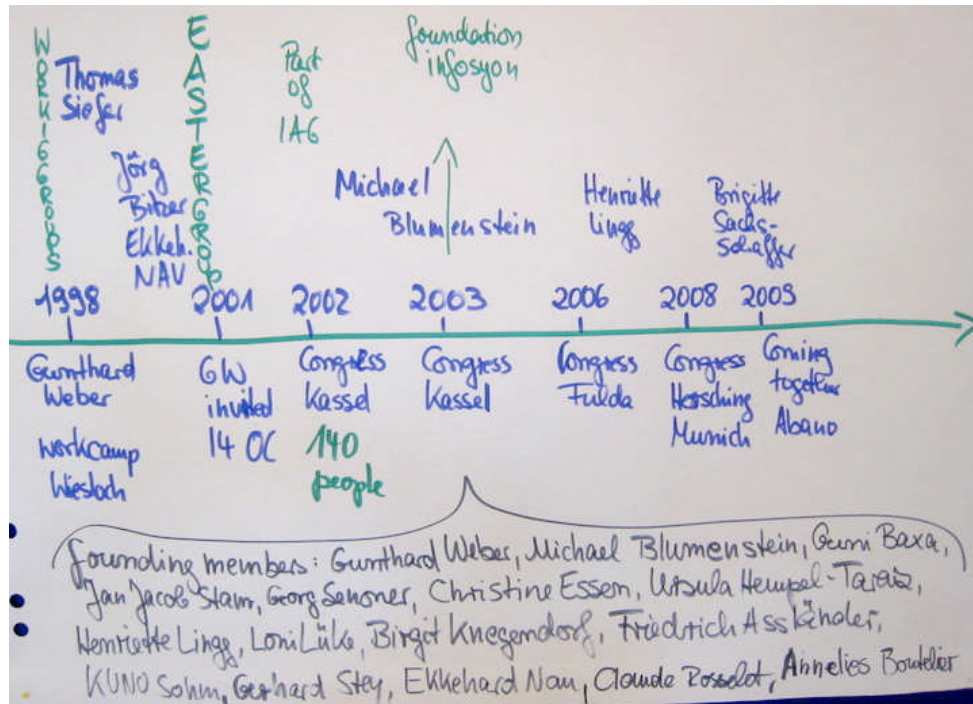 WORKIGGROUPS
Thomas
Siefer
Jörg
Bitzer
Ekkeh.
NAV
EASTERGROUP
Part
of
IAG
foundation
infosyon
Michael
Blumenstein
Henriette
Lingg
Brigitte
Sachs-
Schaffer
1998
2001
2002
2003
2006
2008
2009
Gunthard
Weber
workcamp
Wiesloch
GW
invited
14 OC
Congress
Kassel
140
people
Congress
Kassel
Congress
Fulda
Congress
Herrsching
Munich
Coming
together
Abano
founding members: Gunthard Weber, Michael Blumenstein, Guni Baxa,
Jan Jacob Stam, Georg Senoner, Christine Essen, Ursula Hempel-
Henriette Lingg, Loni Lüke, Birgit Knegendorf, Friedrich Assländer,
KUNO Sohm, Gerhard Stey, Ekkehard Nau, Claude Rosselet, Annelies Boutelier